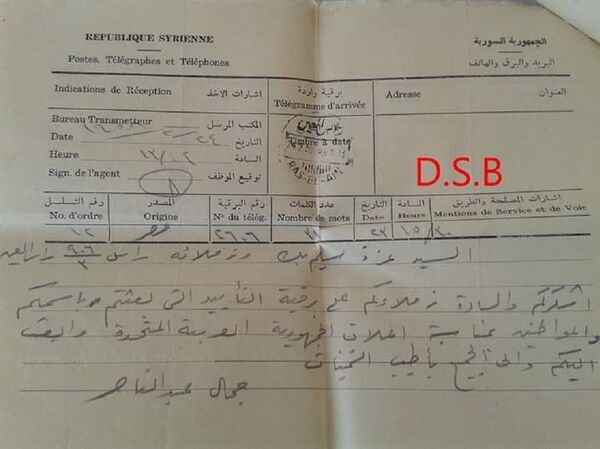 REPUBLIQUE SYRIENNE
Postes, Télégraphes et Téléphones
الجمهورية السورية
البريد والبرق والهاتف
Indications de Réception
اشارات الاخذ
برقية واردة
Télégramme d'arrivée
Adresse
العنوان
Bureau Transmetteur
المكتب المرسل
Date
التاريخ
Timbre à date
Heure
الساعة
Sign. de l'agent
توقيع الموظف
RAS-EL-AIN
D.S.B
رقم التسلسل
No. d'ordre
المصدر
Origine
رقم البرقية
No du télég.
عدد الكلمات
Nombre de mots
التاريخ
Date
الساعة
Heure
اشارات المصلحة والطريق
Mentions de Service et de Voie
١٢
مصر
٢٦٠٦
٣٢
٢٣
١٥/٣٠
السيد عزة سليم بك وزملائه راس العين
اشكركم والسادة زملاءكم على برقية التأييد التي بعثتم باسمكم
والمواطنين بمناسبة اعلان الجمهورية العربية المتحدة وابعث
اليكم والى الجميع بأطيب التمنيات
جمال عبد الناصر